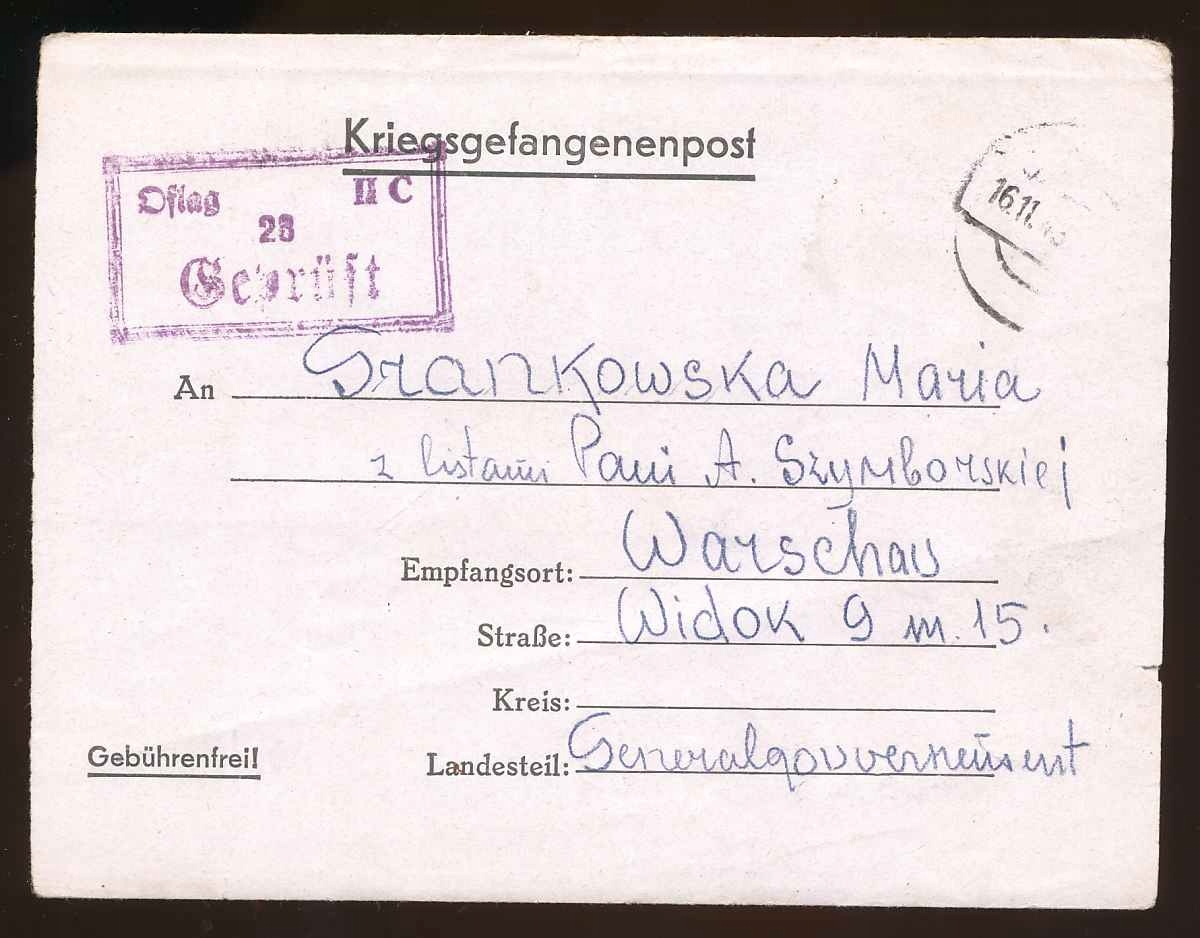 Kriegsgefangenenpost
Oflag II C
28
Geprüft
16.11.
An Grankowska Maria
z listami Pani A. Szymborskiej
Empfangsort: Warschau
Straße: Widok 9 m. 15.
Kreis:
Gebührenfrei!
Landesteil: Generalgouvernement